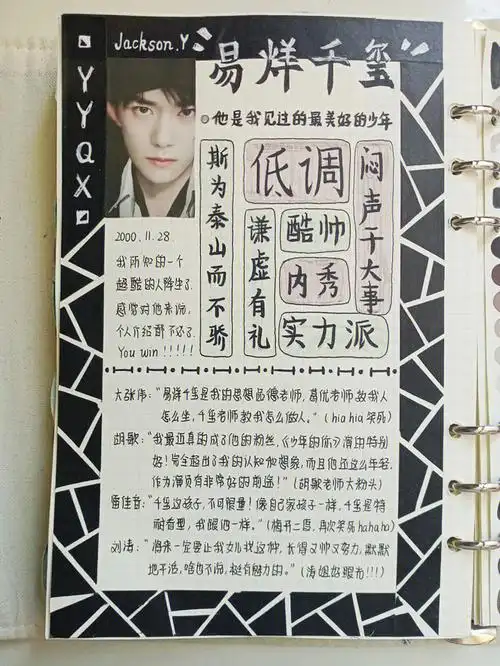 Jackson.Y
易烊千玺
YYQX
他是我见过的最美好的少年
斯为泰山而不骄
低调
闷声干大事
谦虚有礼
酷帅
内秀
实力派
2000.11.28.
我所知的一个
超酷的人降生了.
感觉对他来说,
个人介绍都不必了
You win !!!!!
大张伟:“易烊千玺是我的思想品德老师,葛优老师教我人
怎么生,千玺老师教我怎么做人。”(hia hia 笑死)
胡歌:“我最近真的成了他的粉丝,《少年的你》演的特别
好!完全超出了我的认知和想象,而且他还这么年轻.
作为演员有非常好的前途!”(胡歌老师大粉头)
雷佳音:“千玺这孩子,不可限量!像自己家孩子一样,千玺是特
耐看型,我眼泪一样。”(梅开二度,再次笑死hahaha)
刘涛:“将来一定要让我女儿找这种,长得又帅又努力,默默
地干活,啥也不说,挺有魅力的。”(涛姐好眼光!!!)